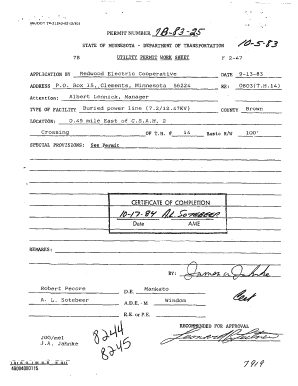 PERMIT NUMBER 7B-83-25
STATE OF MINNESOTA - DEPARTMENT OF TRANSPORTATION 10-5-83
7B UTILITY PERMIT WORK SHEET F 2-47
APPLICATION BY Redwood Electric Cooperative DATE 9-13-83
ADDRESS P.O. Box 15, Clements, Minnesota 56224 RE: 0803(T.H.14)
Attention: Albert Lennick, Manager
TYPE OF FACILITY Buried power line (7.2/12.47KV) COUNTY Brown
LOCATION: 0.45 mile East of C.S.A.H. 2
Crossing OF T.H. # 14 Basic R/W 100'
SPECIAL PROVISIONS: See Permit
CERTIFICATE OF COMPLETION
10-17-84 AL SOTEBEER
Date AME
REMARKS:
BY: James A Jahnke
Robert Pecore D.E. Mankato
A. L. Sotebeer A.D.E. - M Windom
R.E. or P.E.
RECOMMENDED FOR APPROVAL
JUO/net
J.A. Jahnke
8244
8245
7919